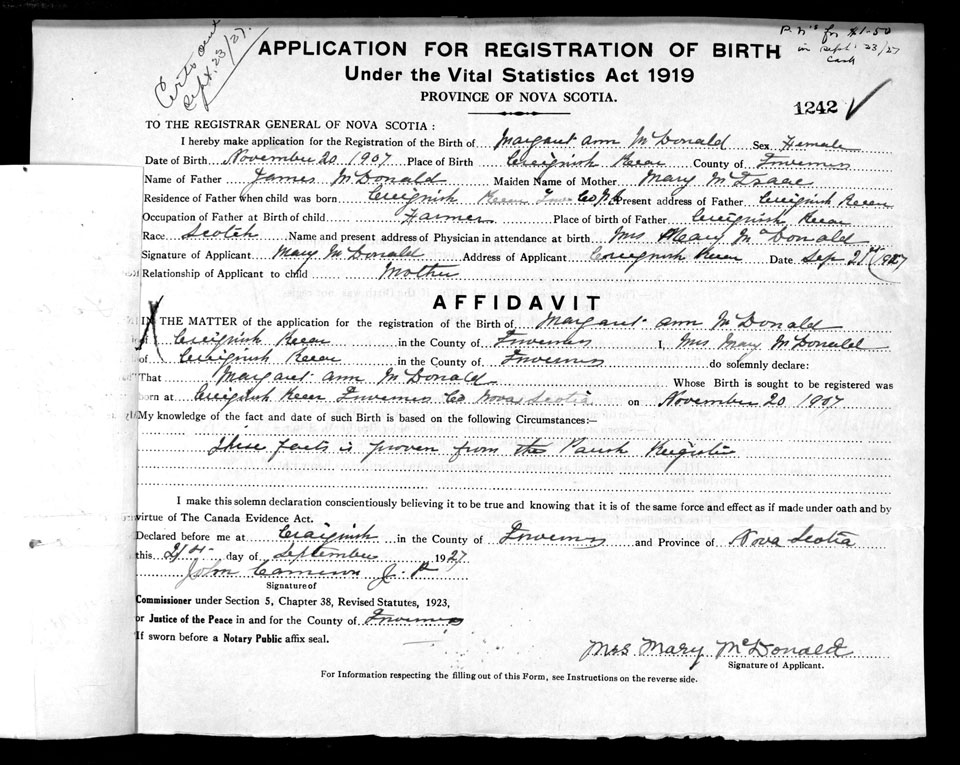 Cert. sent
Sept. 23/27.
P.N's for $1-50
in Sept. 23/27
Cash
APPLICATION FOR REGISTRATION OF BIRTH
Under the Vital Statistics Act 1919
PROVINCE OF NOVA SCOTIA.
1242
TO THE REGISTRAR GENERAL OF NOVA SCOTIA:
I hereby make application for the Registration of the Birth of Margaret Ann McDonald Sex Female
Date of Birth November 20 1907 Place of Birth Creignish Rear County of Inverness
Name of Father James McDonald Maiden Name of Mother Mary McIsaac
Residence of Father when child was born Creignish Rear Inv Co N.S. Present address of Father Creignish Rear
Occupation of Father at Birth of child Farmer Place of birth of Father Creignish Rear
Race Scotch Name and present address of Physician in attendance at birth Mrs Mary McDonald
Signature of Applicant Mary McDonald Address of Applicant Creignish Rear Date Sep 21st 1927
Relationship of Applicant to child Mother
AFFIDAVIT
IN THE MATTER of the application for the registration of the Birth of Margaret Ann McDonald
of Creignish Rear in the County of Inverness I, Mrs Mary McDonald
of Creignish Rear in the County of Inverness do solemnly declare:
That Margaret Ann McDonald Whose Birth is sought to be registered was
born at Creignish Rear Inverness Co Nova Scotia on November 20 1907
My knowledge of the fact and date of such Birth is based on the following Circumstances:—
These facts is proven from the Parish Register
I make this solemn declaration conscientiously believing it to be true and knowing that it is of the same force and effect as if made under oath and by
virtue of The Canada Evidence Act.
Declared before me at Craignish in the County of Inverness and Province of Nova Scotia
this 21st day of September 1927
John Cameron J. P.
Signature of
Commissioner under Section 5, Chapter 38, Revised Statutes, 1923,
or Justice of the Peace in and for the County of Inverness
If sworn before a Notary Public affix seal.
Mrs Mary McDonald
Signature of Applicant.
For Information respecting the filling out of this Form, see Instructions on the reverse side.